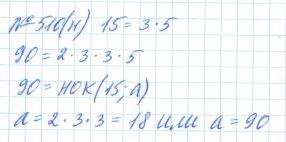 №510(н) 15 = 3·5
90 = 2·3·3·5
90 = НОК(15; а)
а = 2·3·3 = 18 или а = 90